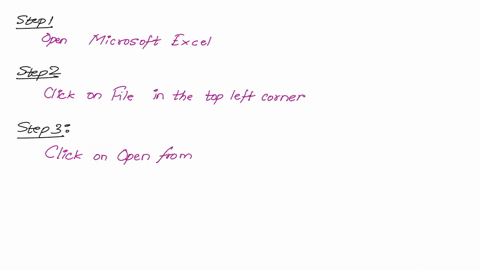 Step1
Open Microsoft Excel
Step2
Click on File in the top left corner
Step3:
Click on Open from